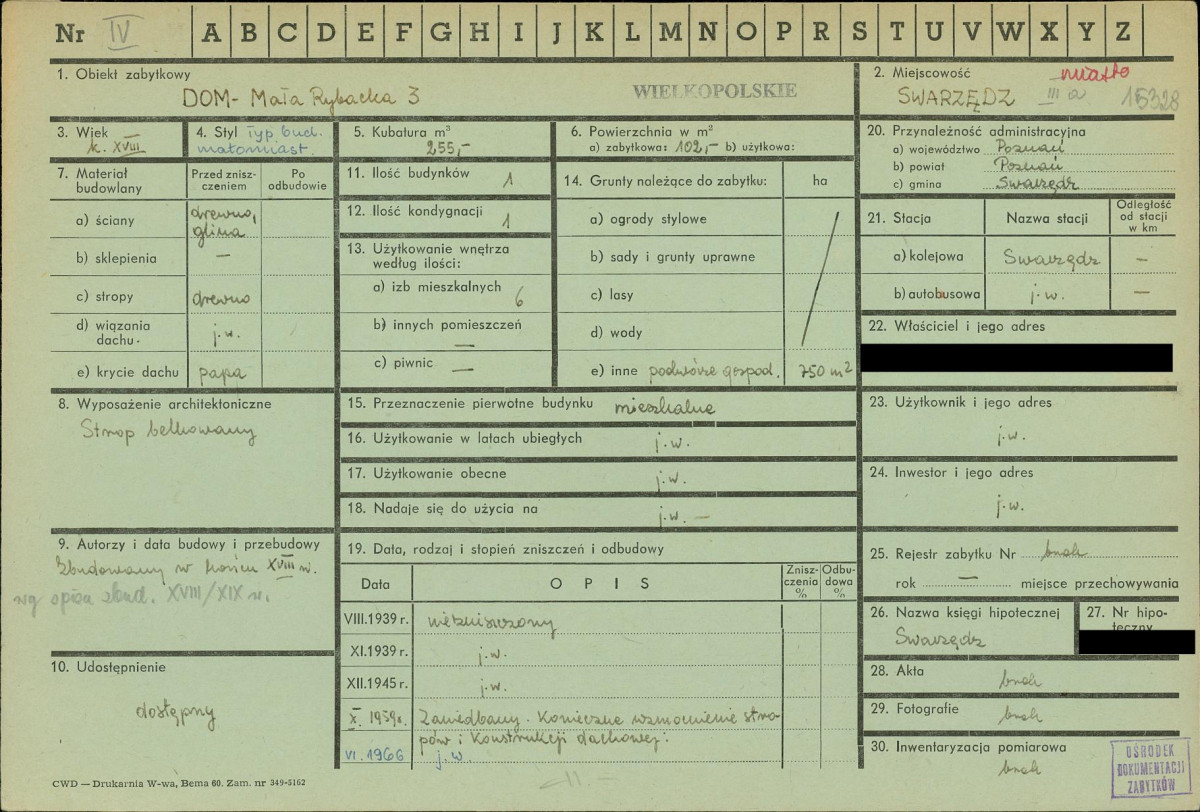 Nr IV A B C D E F G H I J K L M N O P R S T U V W X Y Z
1. Obiekt zabytkowy
DOM - Mała Rybacka 3
WIELKOPOLSKIE
2. Miejscowość miasto
SWARZĘDZ III a 15328
3. Wiek
k. XVIII
4. Styl typ bud.
małomiast.
5. Kubatura m³
255,-
6. Powierzchnia w m²
a) zabytkowa: 102,- b) użytkowa:
7. Materiał budowlany
Przed zniszczeniem
Po odbudowie
a) ściany drewno, glina
b) sklepienia —
c) stropy drewno
d) wiązania dachu j.w.
e) krycie dachu papa
8. Wyposażenie architektoniczne
Strop belkowany
9. Autorzy i data budowy i przebudowy
Zbudowany w końcu XVIII w.
wg opisu zbud. XVIII/XIX w.
10. Udostępnienie
dostępny
11. Ilość budynków 1
12. Ilość kondygnacji 1
13. Użytkowanie wnętrza
według ilości:
a) izb mieszkalnych 6
b) innych pomieszczeń —
c) piwnic —
14. Grunty należące do zabytku: ha
a) ogrody stylowe
b) sady i grunty uprawne
c) lasy
d) wody
e) inne podwórze gospod. 750 m²
15. Przeznaczenie pierwotne budynku mieszkalne
16. Użytkowanie w latach ubiegłych j.w.
17. Użytkowanie obecne j.w.
18. Nadaje się do użycia na j.w. —
19. Data, rodzaj i stopień zniszczeń i odbudowy
Data OPIS Zniszczenia % Odbudowa %
VIII.1939 r. niezniszczony
XI.1939 r. j.w.
XII.1945 r. j.w.
X. 1959r. Zaniedbany. Konieczne wzmocnienie stro-
pów i konstrukcji dachowej.
VI.1966 j.w.
20. Przynależność administracyjna
a) województwo Poznań
b) powiat Poznań
c) gmina Swarzędz
21. Stacja Nazwa stacji Odległość od stacji w km
a) kolejowa Swarzędz —
b) autobusowa j.w. —
22. Właściciel i jego adres
23. Użytkownik i jego adres
j.w.
24. Inwestor i jego adres
j.w.
25. Rejestr zabytku Nr brak
rok — miejsce przechowywania
26. Nazwa księgi hipotecznej
Swarzędz
27. Nr hipoteczny
28. Akta
brak
29. Fotografie
brak
30. Inwentaryzacja pomiarowa
brak
OŚRODEK
DOKUMENTACJI
ZABYTKÓW
CWD — Drukarnia W-wa, Bema 60. Zam. nr 349-5162